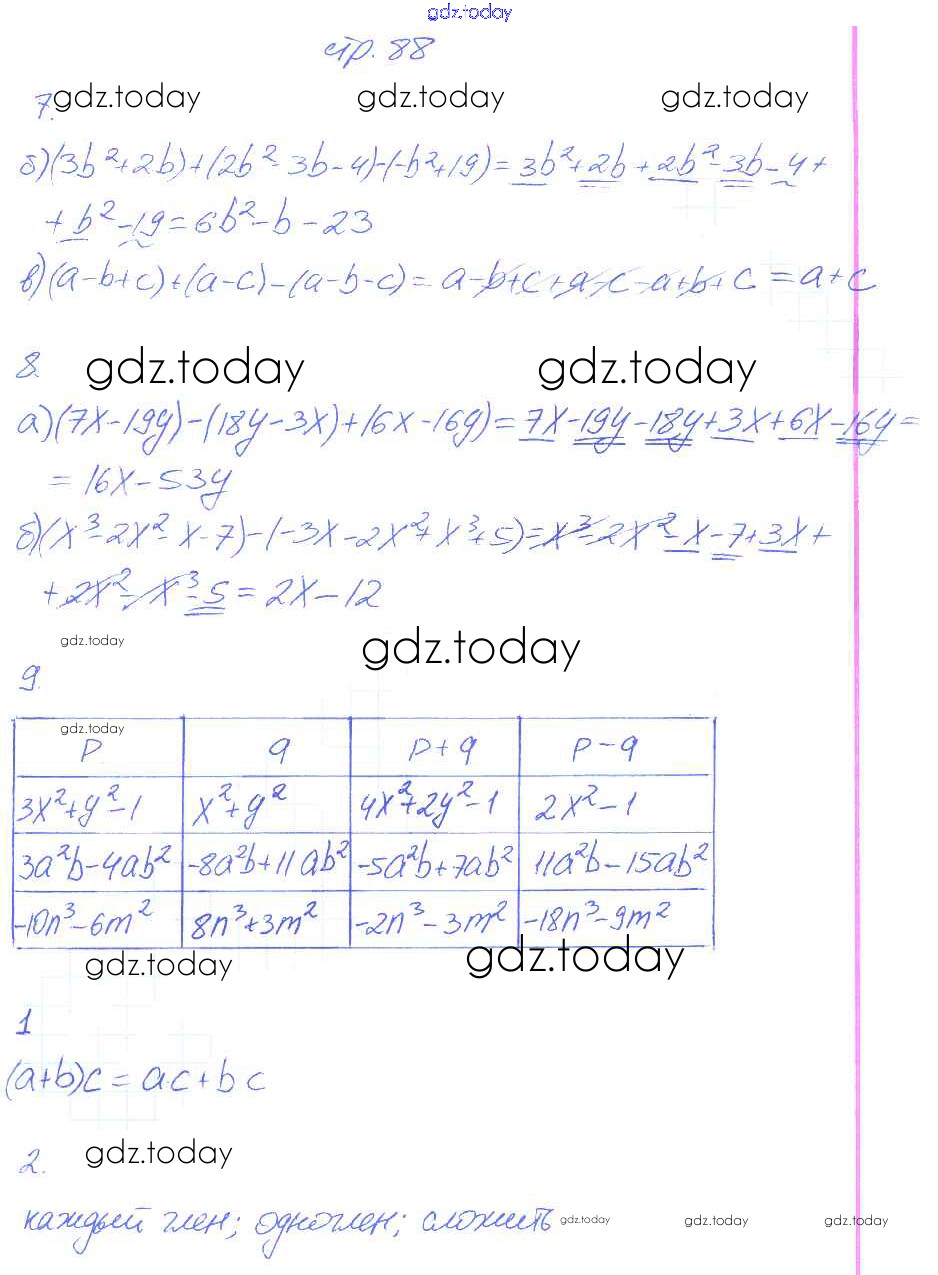 gdz.today
стр. 88
7. gdz.today gdz.today gdz.today
б) (3b²+2b)+(2b²-3b-4)-(-b²+19)=3b²+2b+2b²-3b-4+
+b²-19=6b²-b-23
в) (a-b+c)+(a-c)-(a-b-c)=a-b+c+a-c-a+b+c=a+c
8. gdz.today gdz.today
а) (7x-19y)-(18y-3x)+(6x-16y)=7x-19y-18y+3x+6x-16y=
=16x-53y
б) (x³-2x²-x-7)-(-3x-2x²+x³+5)=x³-2x²-x-7+3x+
+2x²-x³-5=2x-12
gdz.today gdz.today
9.
gdz.today
p q p+q p-q
3x²+y²-1 x²+y² 4x²+2y²-1 2x²-1
3a²b-4ab² -8a²b+11ab² -5a²b+7ab² 11a²b-15ab²
-10n³-6m² 8n³+3m² -2n³-3m² -18n³-9m²
gdz.today gdz.today
1
(a+b)c=a·c+b c
2. gdz.today
каждый член; одночлен; сложить gdz.today gdz.today gdz.today